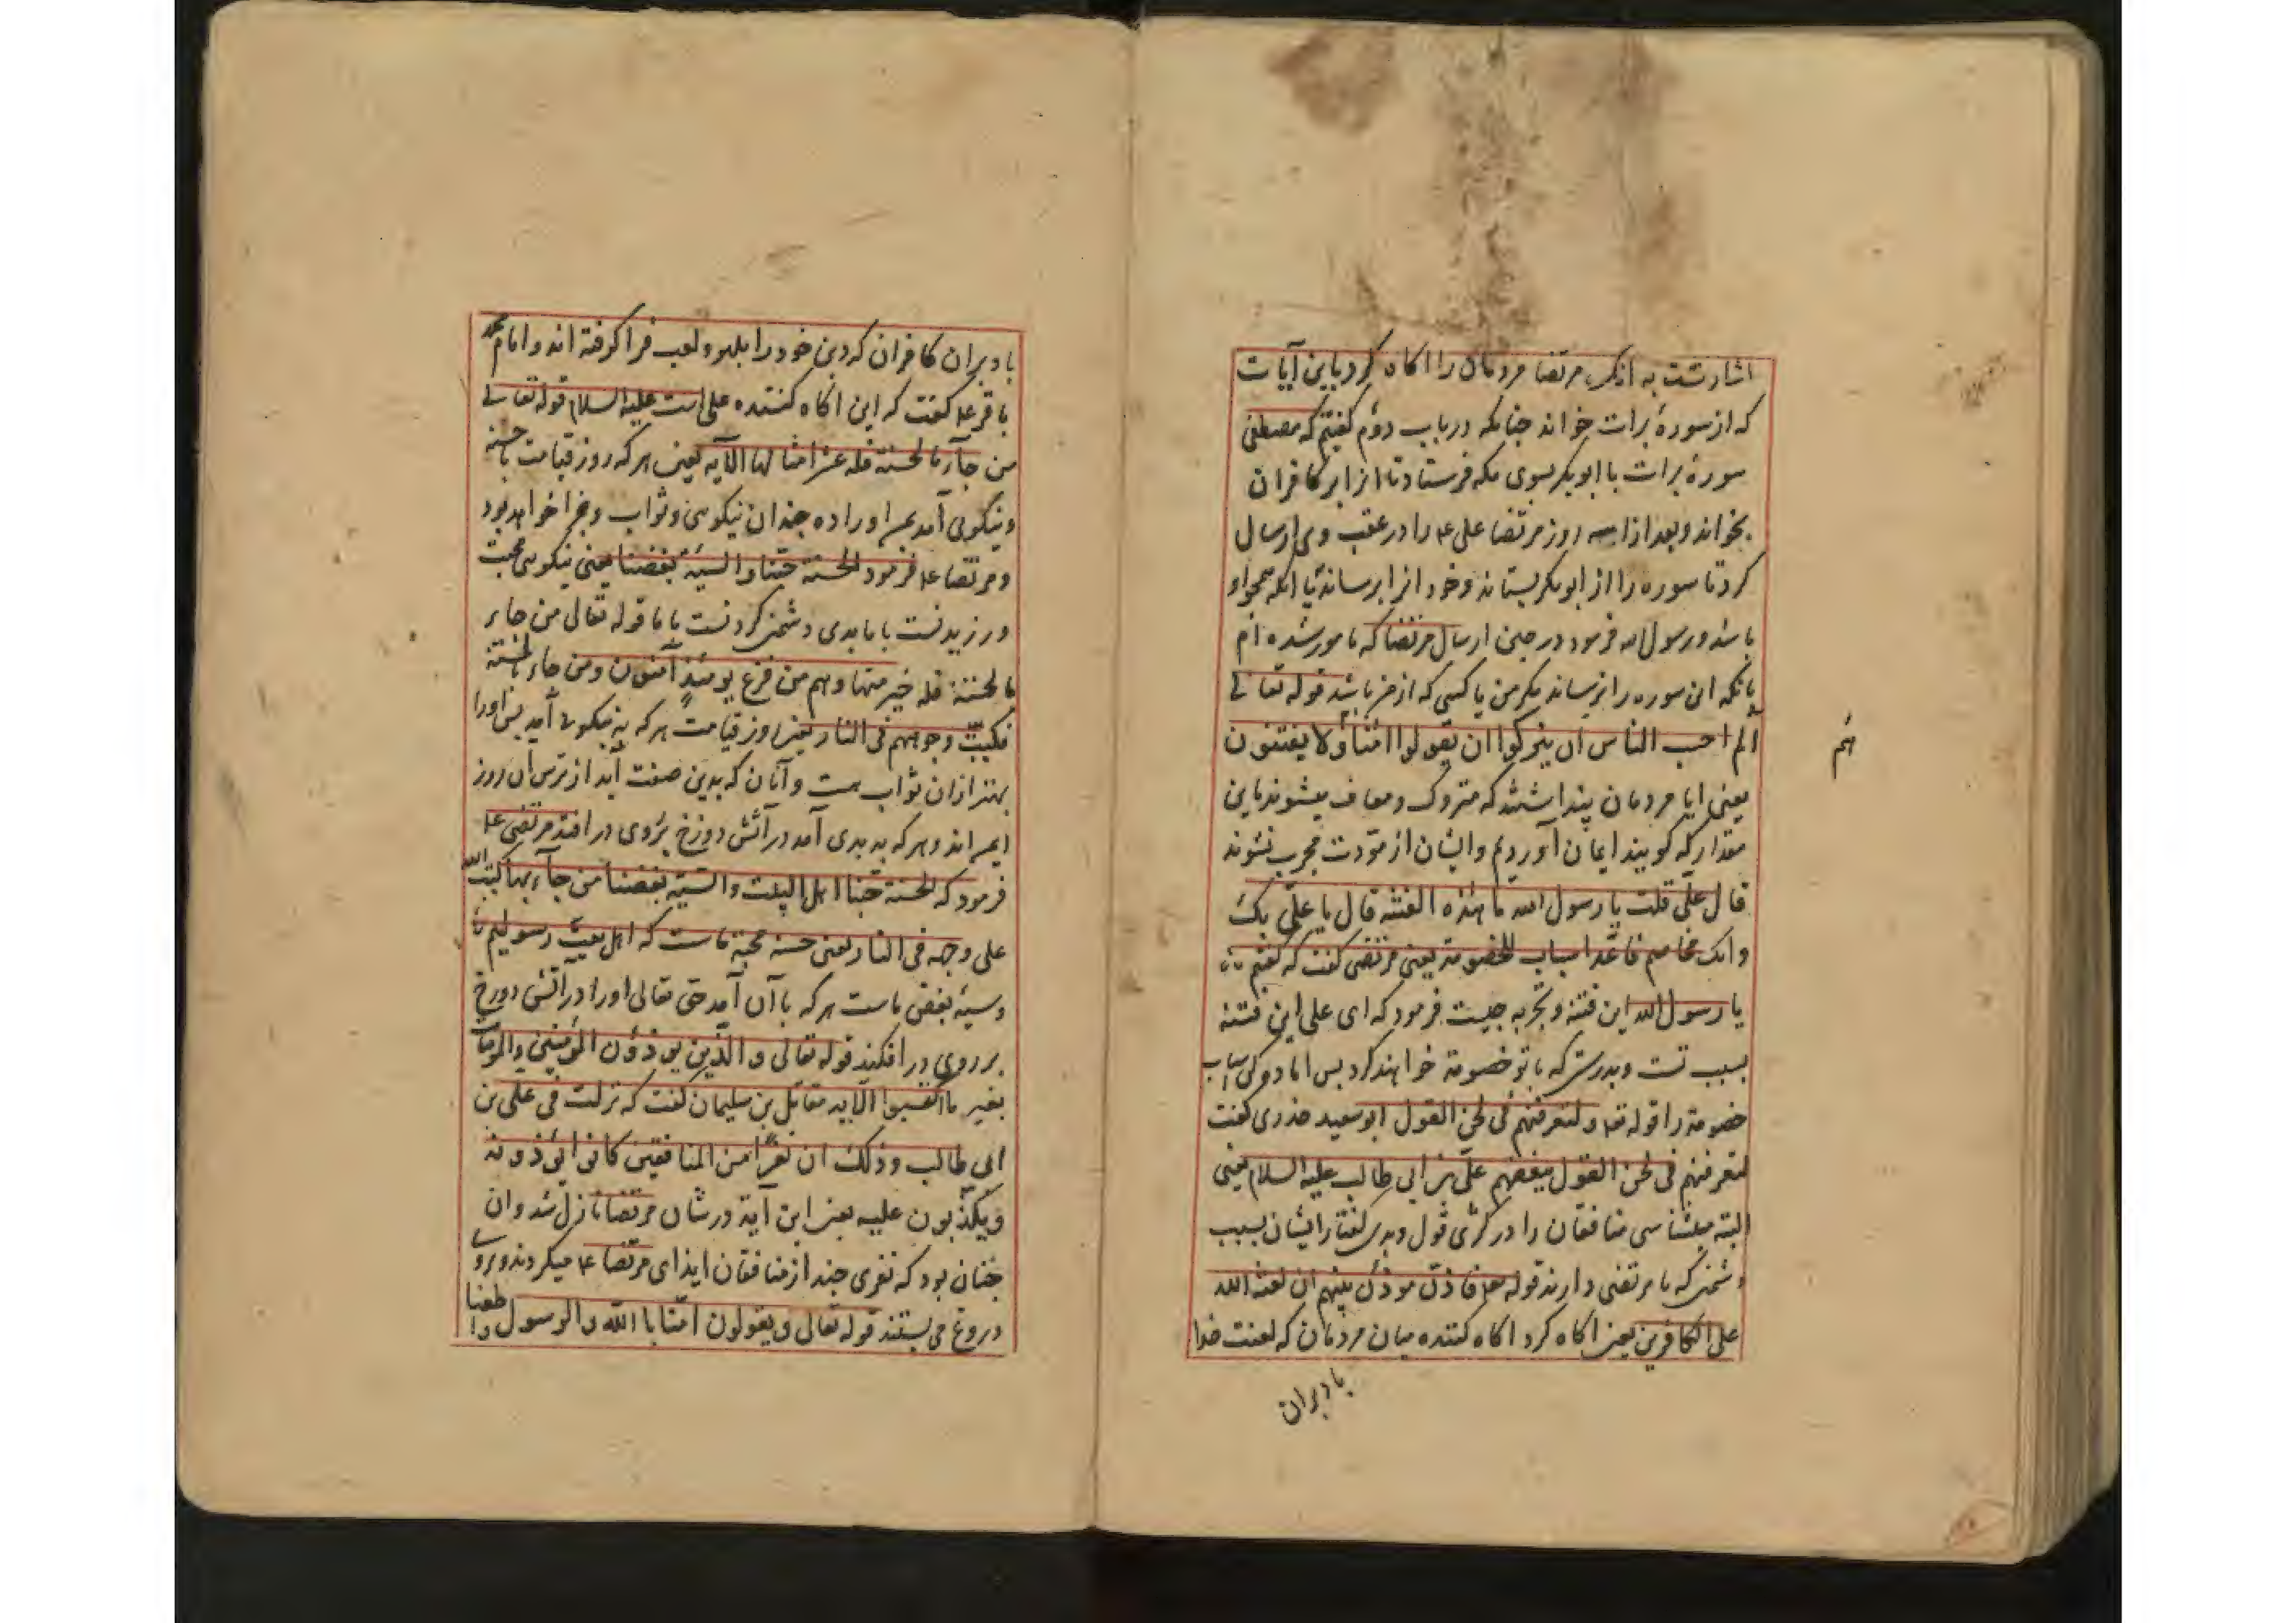 اشارتست به آنکه مرتضا مردمان را اکاه کرد باین آیات
که از سورهٔ برات خواند جنانکه در باب دوم کفتیم که مصطفی
سورهٔ برات با ابوبکر بسوی مکه فرستاد تا انرا بر کافران
بخواند و بعد از سه روز مرتضا علی ع را در عقب وی ارسال
کرد تا سوره را از ابوبکر بستاند و خود انرا برساند با انکه همجو او
باشد و رسول الله فرمود در حین ارسال مرتضا که مامور شده ام
بانکه این سوره را نرساند مکر من یا کسی که از من باشد قوله تعالی
الم احسب الناس ان یترکوا ان یقولوا امنا و لا یفتنون
هم
یعنی ایا مردمان پنداشتند که متروک و معاف میشوند باین
مقدار که کویند ایمان آوردیم وایشان از مودت مجرب نشوند
قال علی قلت یا رسول الله ما هذه الفتنه قال یا علی بک
وانک مخاصم فاعد اسباب للخصومة یعنی مرتضی کفت که کفتم
یا رسول الله این فتنه و تجربه جیست فرمود که ای علی این فتنه
بسبب تست و بدرستی که با تو خصومة خواهند کرد بس اماده کن اسباب
خصومة را قوله تع و لتعرفنهم فی لحن القول ابوسعید خدری کفت
لتعرفنهم فی لحن القول ببغضهم علی بن ابی طالب علیه السلام یعنی
البته میشناسی منافقان را در کژی قول و بدی کفتار ایشان بسبب
دشمنی که با مرتضی دارند قوله تع فاذن موذن بینهم ان لعنة الله
علی الکافرین یعنی اکاه کرد اکاه کننده میان مردمان که لعنت خدا
بادبران
بادبران کافران که دین خود را بلهو و لعب فرا کرفته اند و امام محمد
باقر ع کفت که این اکاه کننده علی است علیه السلام قوله تعالی
من جآء بالحسنة فله عشر امثالها الآیه یعنی هر که روز قیامت با حسنه
و نیکویی آمد بس او را ده جندان نیکویی و ثواب و جزا خواهد بود
و مرتضا ع فرمود الحسنة حبنا و السیئة بغضنا یعنی نیکویی محبت
ورزیدنست با ما بدی دشمنی کردنست با ما قوله تعالی من جاء
بالحسنة فله خیر منها وهم من فزع یومئذ آمنون ومن جاء بالسیئة
فکبت وجوههم فی النار یعنی روز قیامت هر که به نیکویی آید بس او را
بهتر از ان ثواب هست و آنان که بدین صفت آیند از ترس ان روز
ایمن اند و هر که به بدی آمد در آتش دوزخ بروی در افتد مرتضی ع
فرمود که الحسنة حبنا اهل البیت و السیئة بغضنا من جآء بها اکبه الله
علی وجهه فی النار یعنی حسنه محبة ماست که اهل بیت رسولیم
و سیئه بغض ماست هر که با آن آمد حق تعالی او را در اتش دوزخ
بر روی در افکند قوله تعالی و الذین یوذون المؤمنین والمومنات
بغیر ما اکتسبوا الآیه مقاتل بن سلیمان کفت که نزلت فی علی بن
ابی طالب وذلک ان نفرا من المنافقین کانوا یؤذونه
ویکذبون علیه یعنی این آیة در شان مرتضا نازل شد وان
جنان بود که نفری جند از منافقان ایذای مرتضا ع میکردند و بروی
دروغ می بستند قوله تعالی و یقولون امنا با الله والرسول واطعنا